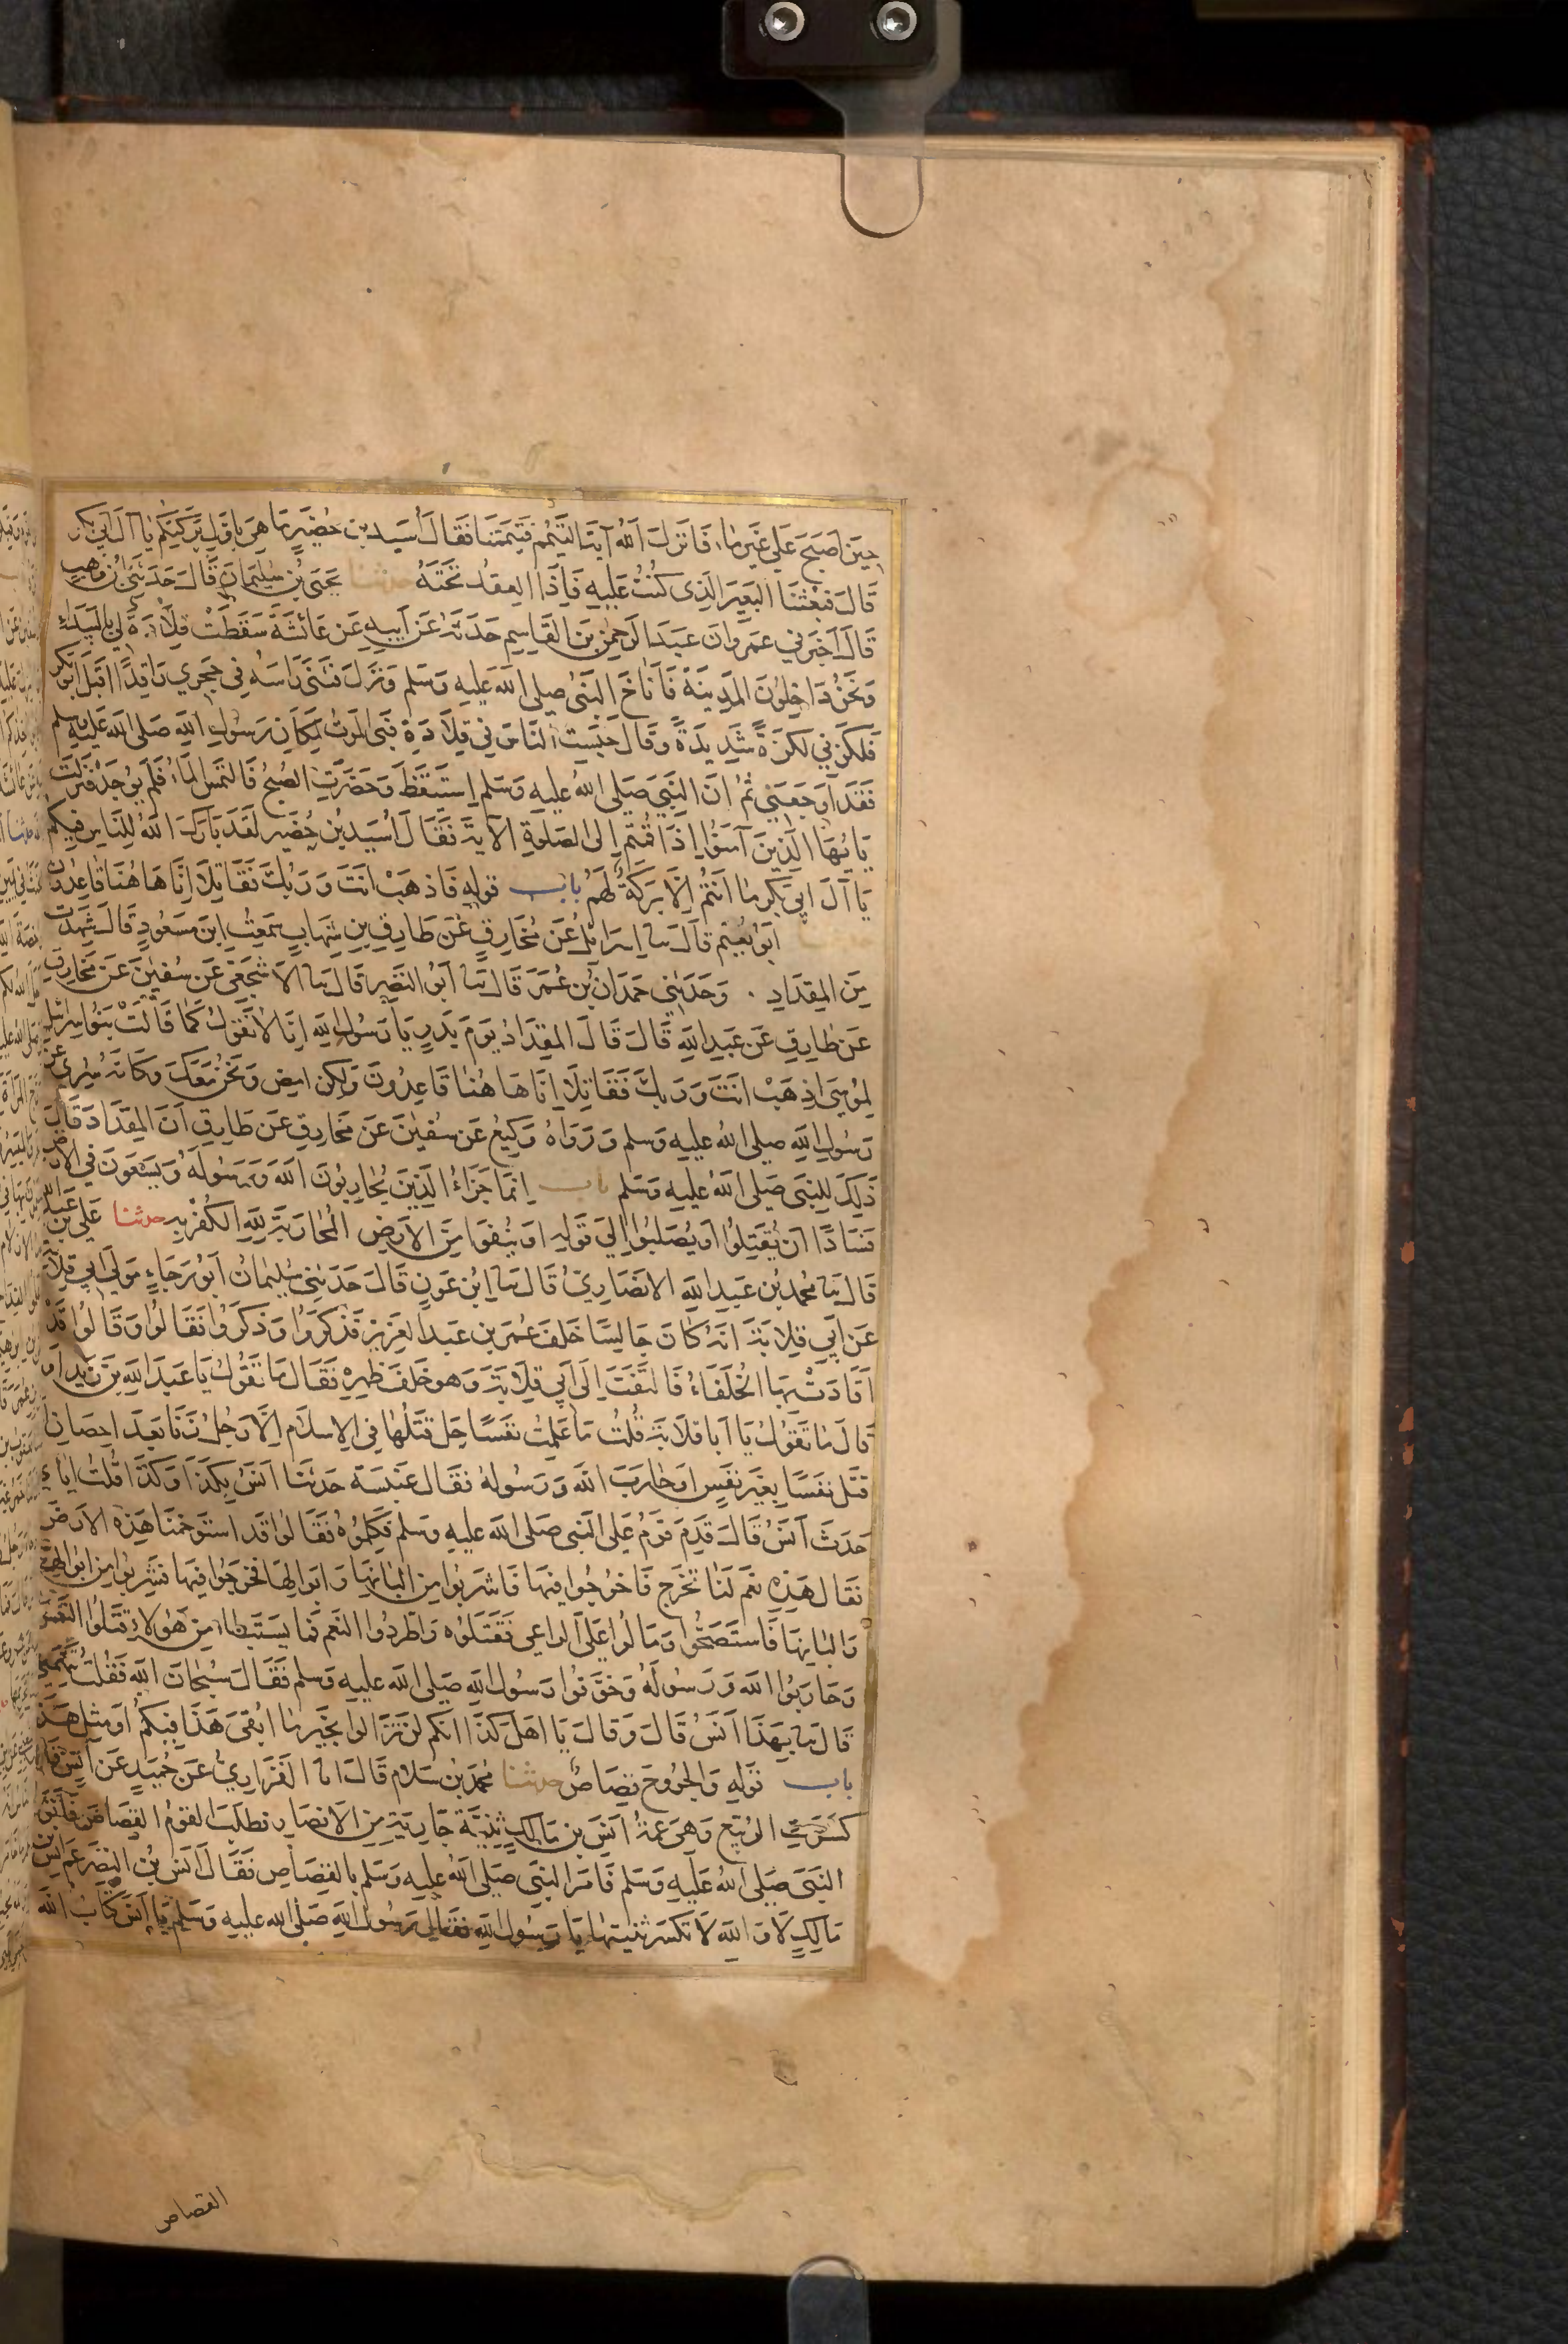 حِينَ اَصْبَحَ عَلَى غَيْرِ مَاءٍ فَاَنْزَلَ اللهُ آيَةَ التَّيَمُّمِ فَتَيَمَّمْنَا فَقَالَ اُسَيْدُ بْنُ حُضَيْرٍ مَا هِيَ بِاَوَّلِ بَرَكَتِكُمْ يَا آلَ اَبِي بَكْرٍ
قَالَ فَبَعَثْنَا الْبَعِيرَ الَّذِى كُنْتُ عَلَيْهِ فَاِذَا الْعِقْدُ تَحْتَهُ حدثنا يَحْيَى بْنُ سُلَيْمَانَ قَالَ حَدَّثَنِي ابْنُ وَهْبٍ
قَالَ اَخْبَرَنِي عَمْرٌو اَنَّ عَبْدَ الرَّحْمٰنِ بْنَ الْقَاسِمِ حَدَّثَهُ عَنْ اَبِيهِ عَنْ عَائِشَةَ سَقَطَتْ قِلَادَةٌ لِي بِالْبَيْدَاءِ
وَنَحْنُ دَاخِلُونَ الْمَدِينَةَ فَاَنَاخَ النَّبِيُّ صلى الله عَلَيْهِ وَسَلَّم وَنَزَلَ فَثَنَى رَاْسَهُ فِي حَجْرِي رَاقِدًا اَقْبَلَ اَبُو بَكْرٍ
فَلَكَزَنِي لَكْزَةً شَدِيدَةً وَقَالَ حَبَسْتِ النَّاسَ فِي قِلَادَةٍ فَبِيَ الْمَوْتُ لِمَكَانِ رَسُولِ اللهِ صَلَّى اللهُ عَلَيْهِ وَسَلَّمَ
فَقَدْ اَوْجَعَنِي ثُمَّ اِنَّ النَّبِيَّ صَلَّى اللهُ عَلَيْهِ وَسَلَّم اِسْتَيْقَظَ وَحَضَرَتِ الصُّبْحُ فَالْتُمِسَ الْمَاءُ فَلَمْ يُوجَدْ فَنَزَلَتْ
يَا اَيُّهَا الَّذِينَ آمَنُوا اِذَا قُمْتُمْ اِلَى الصَّلٰوةِ الْآيَةَ فَقَالَ اُسَيْدُ بْنُ حُضَيْرٍ لَقَدْ بَارَكَ اللهُ لِلنَّاسِ فِيكُمْ
يَا آلَ اَبِي بَكْرٍ مَا اَنْتُمْ اِلَّا بَرَكَةٌ لَهُمْ باب قوله فَاذْهَبْ اَنْتَ وَرَبُّكَ فَقَاتِلَا اِنَّا هَاهُنَا قَاعِدُونَ
اَبُو نُعَيْمٍ قَالَ ثنا اِسْرَائِيلُ عَنْ مُخَارِقٍ عَنْ طَارِقِ بْنِ شِهَابٍ سَمِعْتُ ابْنَ مَسْعُودٍ قَالَ شَهِدْتُ
مِنَ الْمِقْدَادِ . وَحَدَّثَنِي حَمْدَانُ بْنُ عُمَرَ قَالَ ثنا اَبُو النَّضْرِ قَالَ ثنا الْاَشْجَعِيُّ عَنْ سُفْيٰنَ عَنْ مُخَارِقٍ
عَنْ طَارِقٍ عَنْ عَبْدِ اللهِ قَالَ قَالَ الْمِقْدَادُ يَوْمَ بَدْرٍ يَا رَسُولَ اللهِ اِنَّا لَا نَقُولُ كَمَا قَالَتْ بَنُو اِسْرَائِيلَ
لِمُوسَى اذْهَبْ اَنْتَ وَرَبُّكَ فَقَاتِلَا اِنَّا هَاهُنَا قَاعِدُونَ وَلٰكِنِ امْضِ وَنَحْنُ مَعَكَ فَكَاَنَّهُ سُرِّيَ عَنْ
رَسُولِ اللهِ صلى الله عليه وسلم وَرَوَاهُ وَكِيعٌ عَنْ سُفْيٰنَ عَنْ مُخَارِقٍ عَنْ طَارِقٍ اَنَّ الْمِقْدَادَ قَالَ
ذٰلِكَ لِلنَّبِيِّ صَلَّى اللهُ عَلَيْهِ وَسَلَّم باب اِنَّمَا جَزَاءُ الَّذِينَ يُحَارِبُونَ اللهَ وَرَسُولَهُ وَيَسْعَوْنَ فِي الْاَرْضِ
فَسَادًا اَنْ يُقَتَّلُوا اَوْ يُصَلَّبُوا اِلَى قَوْلِهِ اَوْ يُنْفَوْا مِنَ الْاَرْضِ الْمُحَارَبَةُ لِلهِ الْكُفْرُ بِهِ حدثنا عَلِيُّ بْنُ عَبْدِ اللهِ
قَالَ ثنا مُحَمَّدُ بْنُ عَبْدِ اللهِ الْاَنْصَارِيُّ قَالَ ثنا ابْنُ عَوْنٍ قَالَ حَدَّثَنِي سُلَيْمَانُ اَبُو رَجَاءٍ مَوْلَى اَبِي قِلَابَةَ
عَنْ اَبِي قِلَابَةَ اَنَّهُ كَانَ جَالِسًا خَلْفَ عُمَرَ بْنِ عَبْدِ الْعَزِيزِ فَذَكَرُوا وَذَكَرُوا فَقَالُوا وَقَالُوا قَدْ
اَقَادَتْ بِهَا الْخُلَفَاءُ فَالْتَفَتَ اِلَى اَبِي قِلَابَةَ وَهُوَ خَلْفَ ظَهْرِهِ فَقَالَ مَا تَقُولُ يَا عَبْدَ اللهِ بْنَ زَيْدٍ اَوْ
قَالَ مَا تَقُولُ يَا اَبَا قِلَابَةَ قُلْتُ مَا عَلِمْتُ نَفْسًا حَلَّ قَتْلُهَا فِي الْاِسْلَامِ اِلَّا رَجُلٌ زَنَا بَعْدَ اِحْصَانٍ
قَتَلَ نَفْسًا بِغَيْرِ نَفْسٍ اَوْ حَارَبَ اللهَ وَرَسُولَهُ فَقَالَ عَنْبَسَةُ حَدَّثَنَا اَنَسٌ بِكَذَا وَكَذَا قُلْتُ اِيَّايَ
حَدَّثَ اَنَسٌ قَالَ قَدِمَ قَوْمٌ عَلَى النَّبِيِّ صَلَّى اللهُ عَلَيْهِ وَسَلَّم فَكَلَّمُوهُ فَقَالُوا قَدِ اسْتَوْخَمْنَا هَذِهِ الْاَرْضَ
فَقَالَ هَذِهِ نَعَمٌ لَنَا تَخْرُجُ فَاخْرُجُوا فِيهَا فَاشْرَبُوا مِنْ اَلْبَانِهَا وَاَبْوَالِهَا فَخَرَجُوا فِيهَا فَشَرِبُوا مِنْ اَبْوَالِهَا
وَاَلْبَانِهَا فَاسْتَصَحُّوا وَمَالُوا عَلَى الرَّاعِي فَقَتَلُوهُ وَاطَّرَدُوا النَّعَمَ فَمَا يُسْتَبْطَاُ مِنْ هَؤُلَاءِ قَتَلُوا النَّفْسَ
وَحَارَبُوا اللهَ وَرَسُولَهُ وَخَوَّفُوا رَسُولَ اللهِ صَلَّى اللهُ عَلَيْهِ وَسَلَّم فَقَالَ سُبْحَانَ اللهِ فَقُلْتُ تَتَّهِمُنِي
قَالَ ثنا بِهَذَا اَنَسٌ قَالَ وَقَالَ يَا اَهْلَ كَذَا اِنَّكُمْ لَنْ تَزَالُوا بِخَيْرٍ مَا اَبْقَى هَذَا فِيكُمْ اَوْ مِثْلَ هَذَا
باب قَوْلِهِ وَالْجُرُوحَ قِصَاصٌ حدثنا مُحَمَّدُ بْنُ سَلَامٍ قَالَ انا الْفَزَارِيُّ عَنْ حُمَيْدٍ عَنْ اَنَسٍ قَالَ
كَسَرَتِ الرُّبَيِّعُ وَهِيَ عَمَّةُ اَنَسِ بْنِ مَالِكٍ ثَنِيَّةَ جَارِيَةٍ مِنَ الْاَنْصَارِ فَطَلَبَ الْقَوْمُ الْقِصَاصَ فَاَتَوُا
النَّبِيَّ صَلَّى اللهُ عَلَيْهِ وَسَلَّم فَاَمَرَ النَّبِيُّ صَلَّى اللهُ عَلَيْهِ وَسَلَّم بِالْقِصَاصِ فَقَالَ اَنَسُ بْنُ النَّضْرِ عَمُّ اَنَسِ بْنِ
مَالِكٍ لَا وَاللهِ لَا تُكْسَرُ ثَنِيَّتُهَا يَا رَسُولَ اللهِ فَقَالَ رَسُولُ اللهِ صَلَّى اللهُ عَلَيْهِ وَسَلَّم يَا اَنَسُ كِتَابُ اللهِ
القصاص